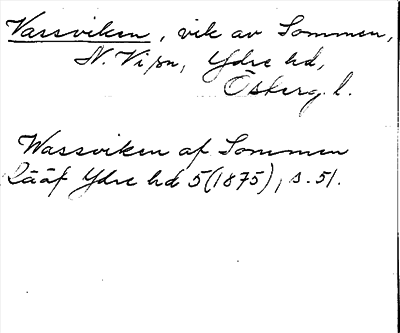 Vassviken, vik av Sommen,
N. Vi sn, Ydre hd,
Österg. l.
Wassviken af Sommen
Rääf Ydre hd 5 (1875), s. 51.